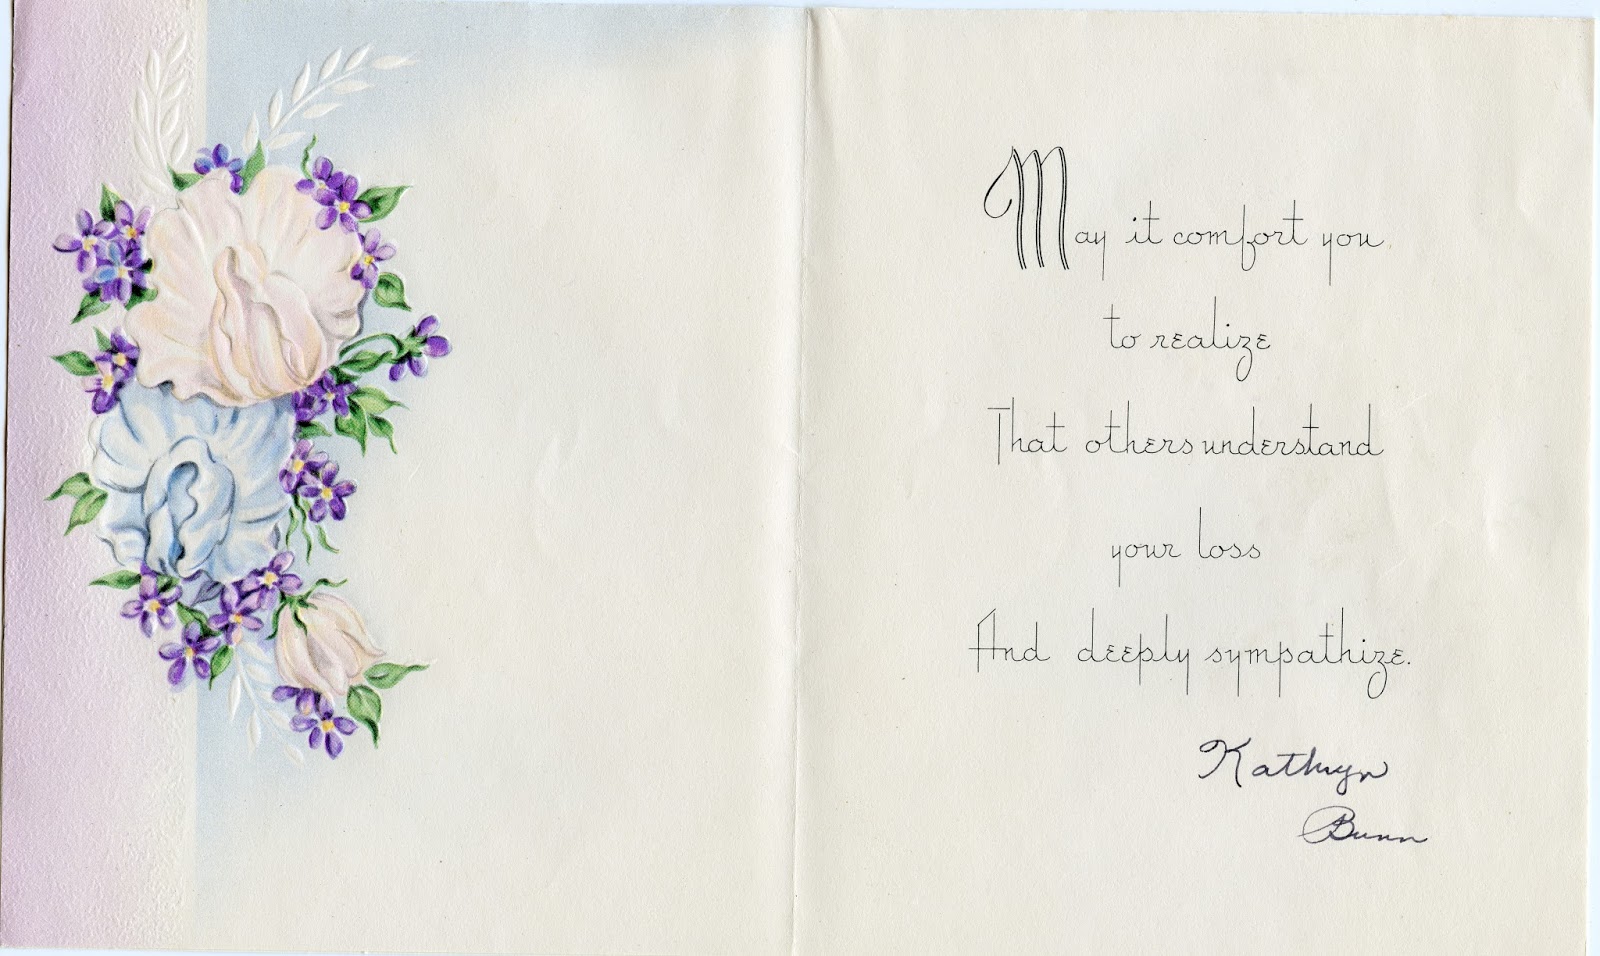 May it comfort you
to realize
That others understand
your loss
And deeply sympathize.
Kathryn
Bunn